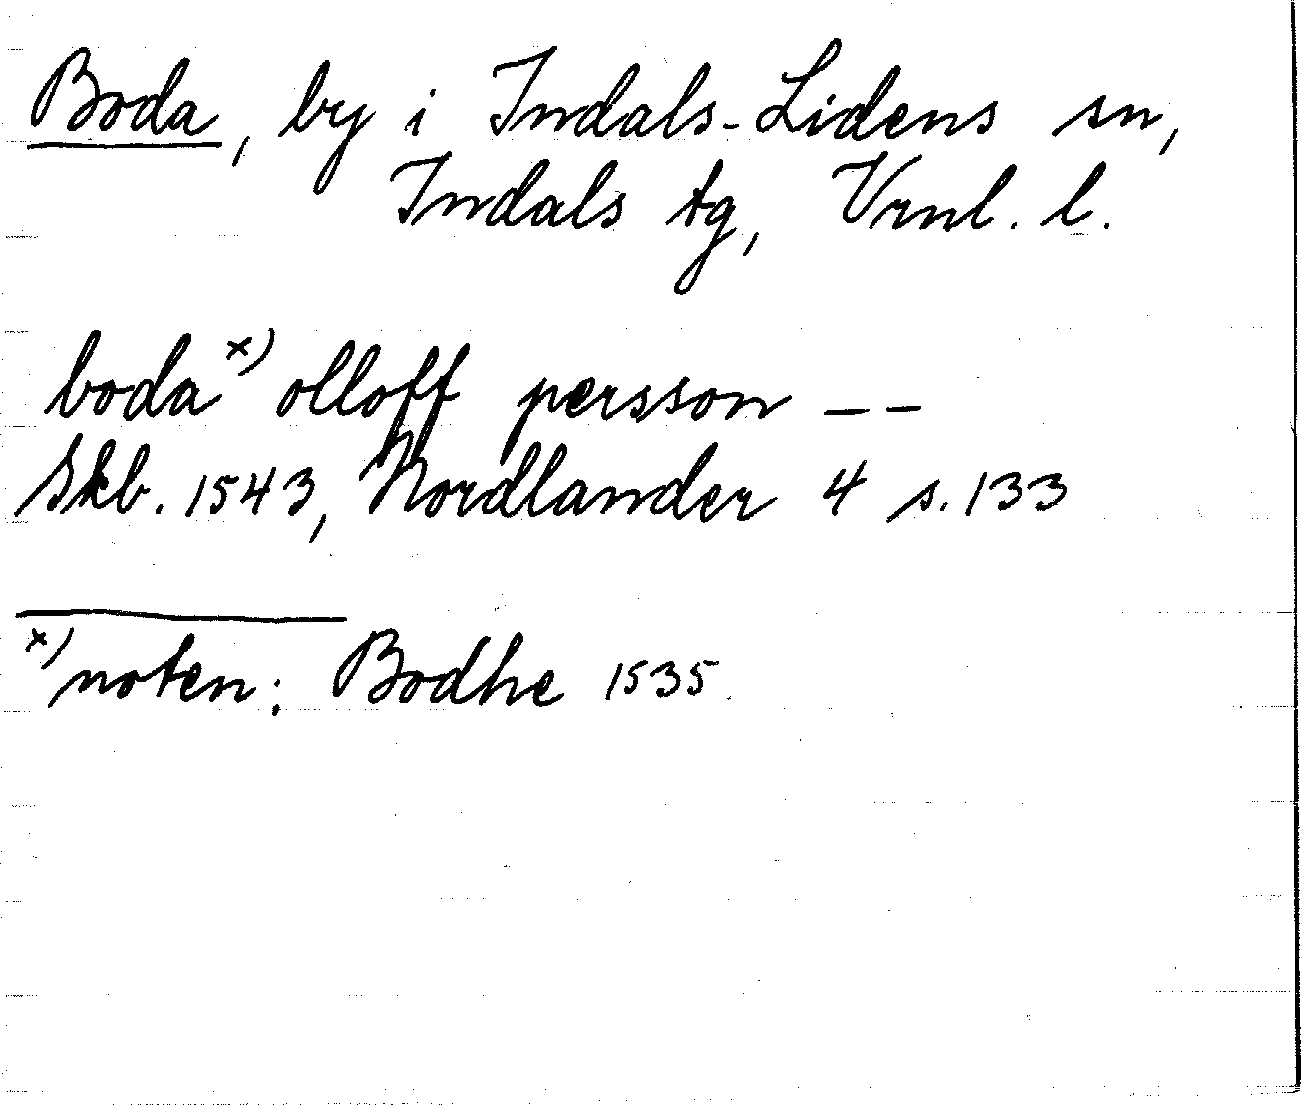 Boda, by i Indals-Lidens sn,
Indals tg, Vrnl. l.
boda x) olloff persson – –
Skb. 1543, Nordlander 4 s. 133
x) noten: Bodhe 1535.